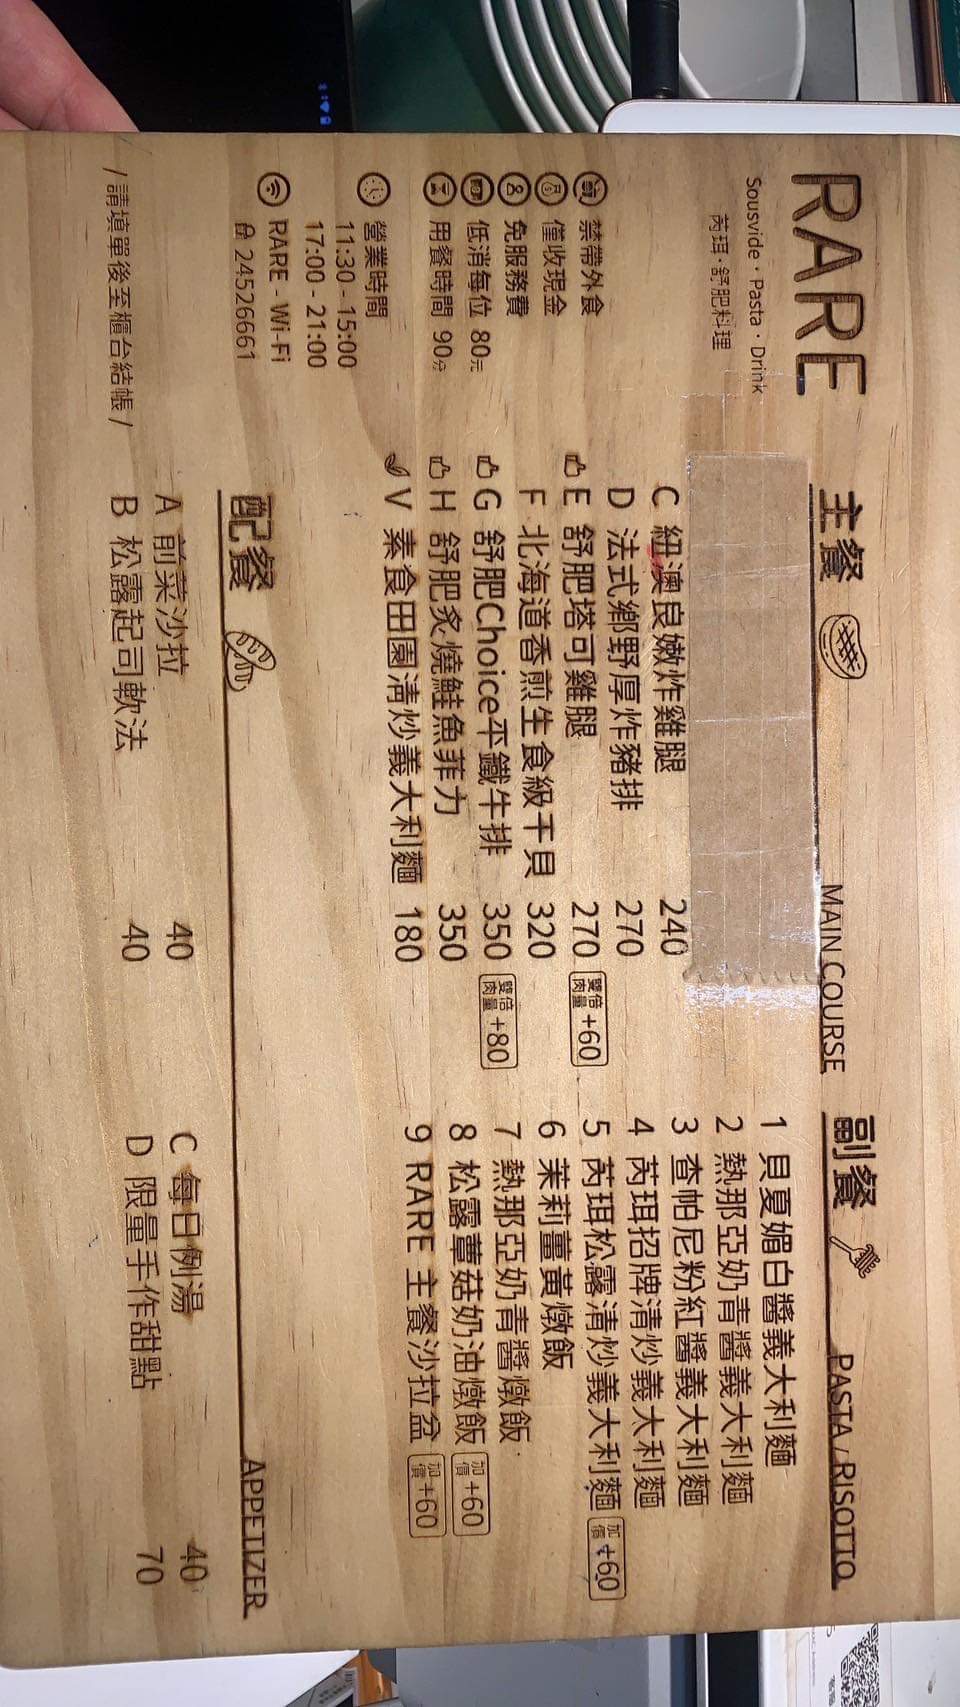 RARE
Sousvide · Pasta · Drink
芮珥·舒肥料理
禁帶外食
僅收現金
免服務費
低消每位 80元
用餐時間 90分
營業時間
11:30 - 15:00
17:00 - 21:00
RARE - Wi-Fi
24526661
/ 請填單後至櫃台結帳 /
主餐 MAIN COURSE
C 紐澳良嫩炸雞腿 240
D 法式鄉野厚炸豬排 270
E 舒肥塔可雞腿 270 雙倍肉量 +60
F 北海道香煎生食級干貝 320
G 舒肥Choice平鐵牛排 350 雙倍肉量 +80
H 舒肥炙燒鮭魚菲力 350
V 素食田園清炒義大利麵 180
副餐 PASTA / RISOTTO
1 貝夏媚白醬義大利麵
2 熱那亞奶青醬義大利麵
3 查帕尼粉紅醬義大利麵
4 芮珥招牌清炒義大利麵
5 芮珥松露清炒義大利麵 加價 +60
6 茉莉薑黃燉飯
7 熱那亞奶青醬燉飯
8 松露蕈菇奶油燉飯 加價 +60
9 RARE 主餐沙拉盆 加價 +60
配餐 APPETIZER
A 前菜沙拉 40
B 松露起司軟法 40
C 每日例湯 40
D 限量手作甜點 70